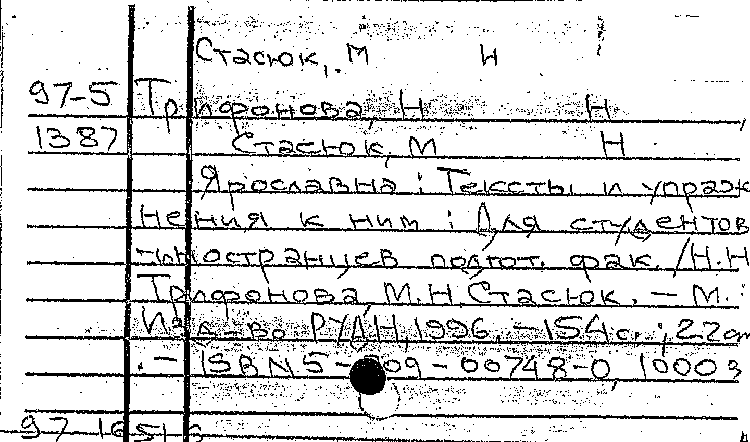 Стасюк, М Н
97-5 Трифонова, Н Н
1387 Стасюк, М Н
Ярославна : Тексты и упраж
нения к ним : Для студентов
-иностранцев подгот. фак. / Н.Н
Трифонова, М.Н. Стасюк. – М. :
Изд-во РУДН, 1996. – 154 с. ; 22 cm
. – ISBN 5- 09-00748-0, 1000 э